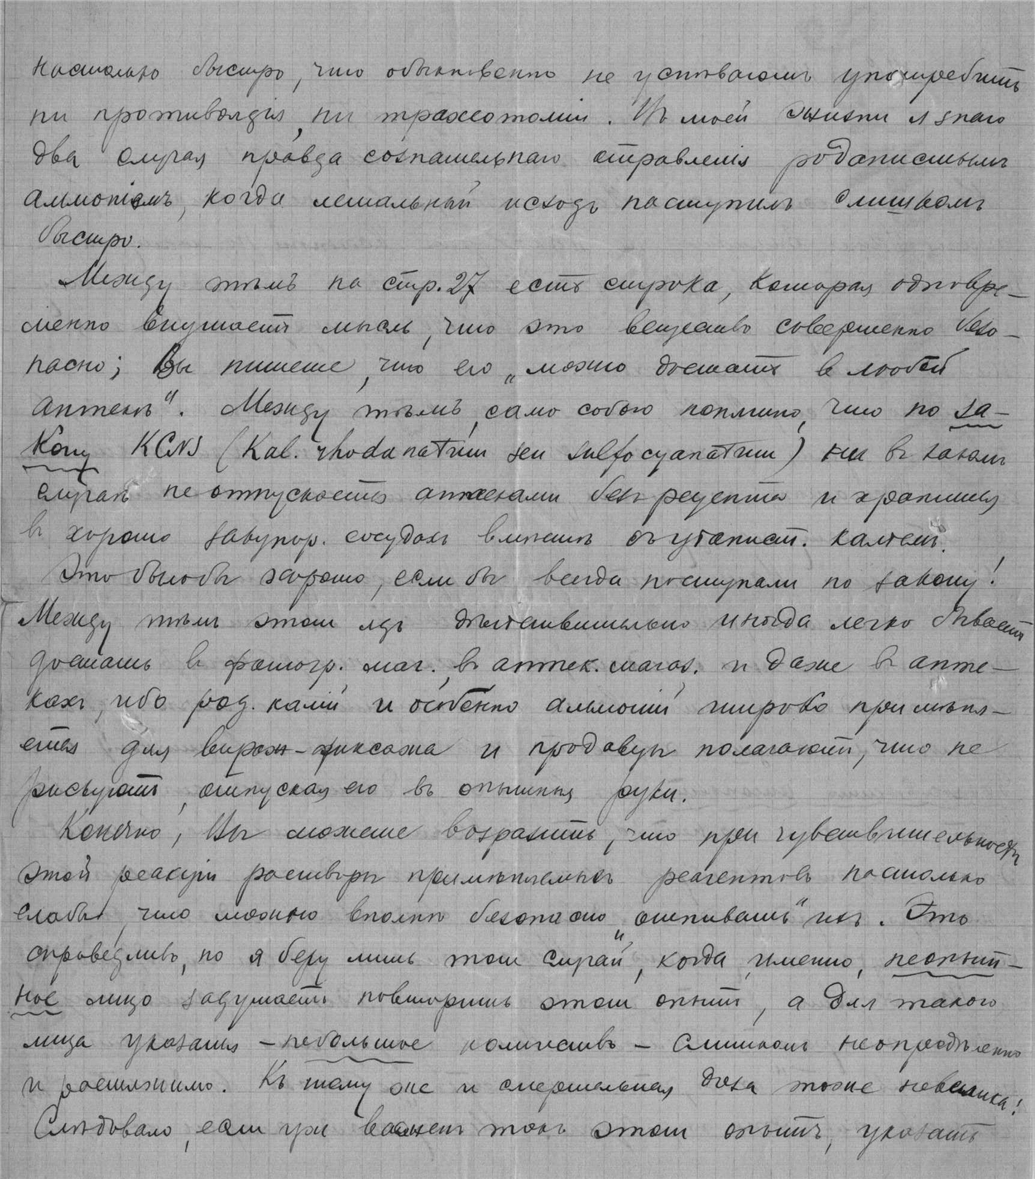 настолько быстро, что обыкновенно не успѣваютъ употребить
ни противоядія, ни трахеотоміи. Въ моей жизни я знаю
два случая правда сознательнаго отравленія роданистымъ
аммоніемъ, когда летальный исходъ наступилъ слишкомъ
быстро.
Между тѣмъ на стр. 27 есть строка, которая одновре-
менно внушаетъ мысль, что это вещество совершенно безо-
пасно; Вы пишете, что его „можно достать в любой
аптекѣ". Между тѣмъ, само собою понятно, что по за-
кону KCNS (Kal. rhodanatum seu sulfocyanatum) ни в какомъ
случаѣ не отпускается аптеками безъ рецепта и хранится
в хорошо закупор. сосудахъ вмѣстѣ съ ціанист. каліемъ.
Это было бы хорошо, если бы всегда поступали по закону!
Между тѣмъ этотъ ядъ дѣйствительно иногда легко бываетъ
достать в фотогр. маг., в аптек. магаз. и даже в апте-
кахъ, ибо род. калій и особенно аммоній широко примѣня-
ется для вираж-фиксажа и продавцы полагаютъ, что не
рискуютъ, отпуская его въ опытныя руки.
Конечно, Вы можете возразить, что при чувствительности
этой реакціи растворы примѣняемыхъ реагентовъ настолько
слабы, что можно вполнѣ безопасно „отпивать" ихъ. Это
справедливо, но я беру лишь тотъ случай, когда, именно, неопыт-
ное лицо задумаетъ повторить этотъ опытъ, а для такого
лица указанія – небольшое количество – слишкомъ неопредѣленно
и растяжимо. Къ тому же и смертельная доза тоже невелика!
Слѣдовало, если уже важенъ такъ этотъ опытъ, указать